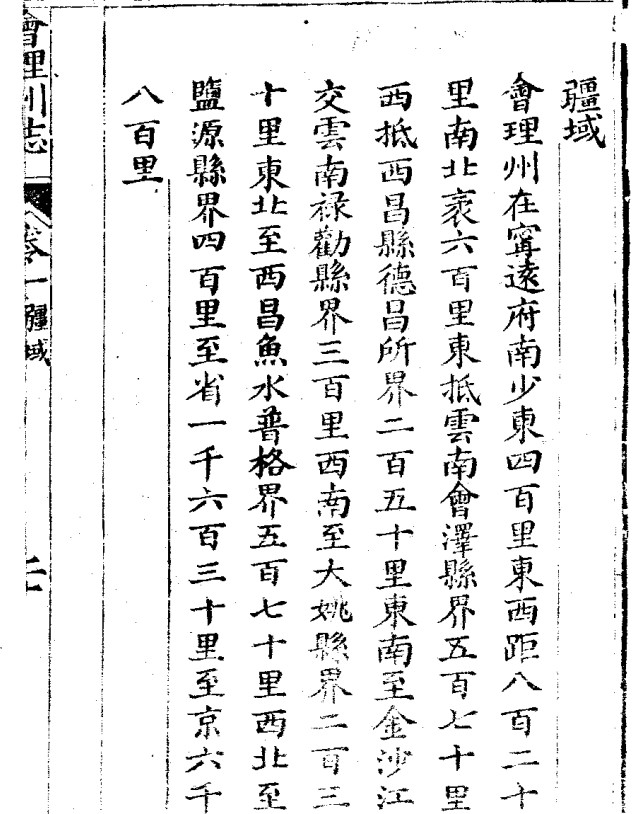 疆域
會理州在甯遠府南少東四百里東西距八百二十
里南北袤六百里東抵雲南會澤縣界五百七十里
西抵西昌縣德昌所界二百五十里東南至金沙江
交雲南禄勸縣界三百里西南至大姚縣界二百三
十里東北至西昌魚水普格界五百七十里西北至
鹽源縣界四百里至省一千六百三十里至京六千
八百里
會理州志
卷一 疆域